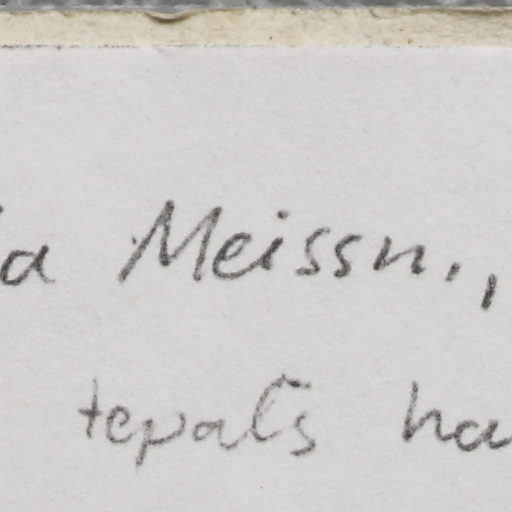 a Meissn.,
tepals ha